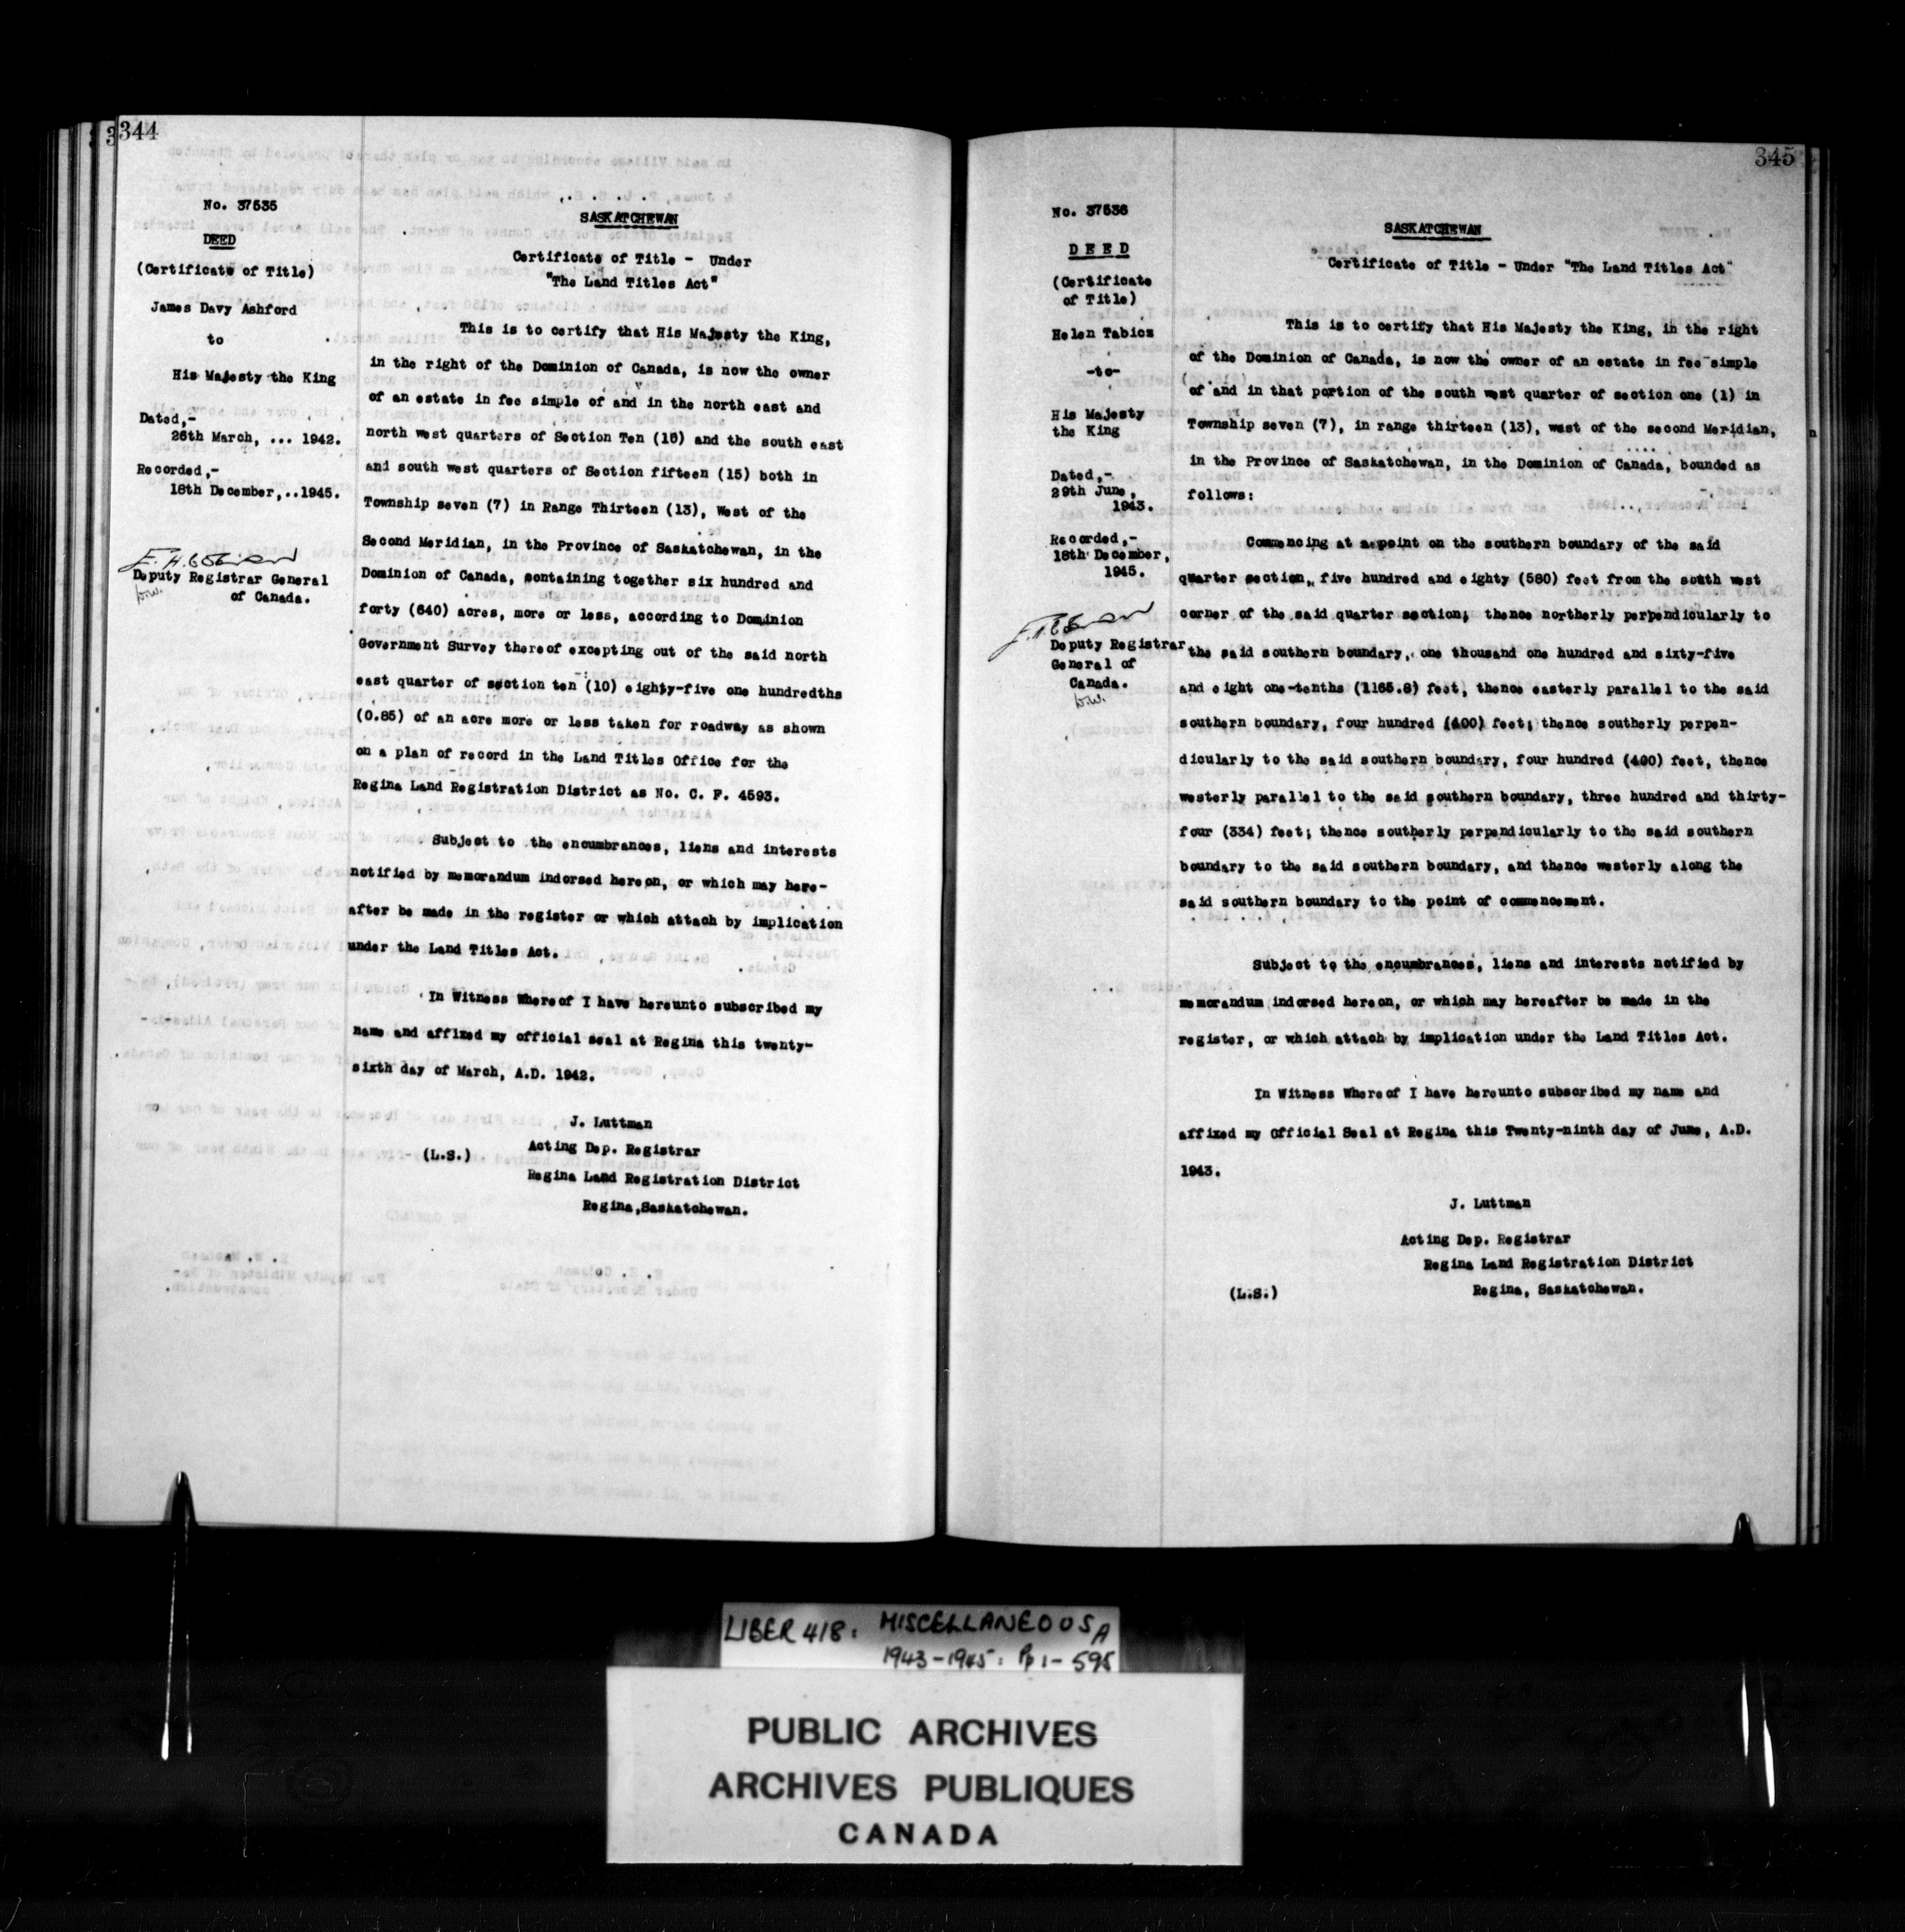 344
No. 37535
DEED
(Certificate of Title)
James Davy Ashford
to
His Majesty the King
Dated,-
26th March, ... 1942.
Recorded,-
18th December,..1945.
Deputy Registrar General
of Canada.
SASKATCHEWAN
Certificate of Title - Under
"The Land Titles Act"
This is to certify that His Majesty the King,
in the right of the Dominion of Canada, is now the owner
of an estate in fee simple of and in the north east and
north west quarters of Section Ten (10) and the south east
and south west quarters of Section fifteen (15) both in
Township seven (7) in Range Thirteen (13), West of the
Second Meridian, in the Province of Saskatchewan, in the
Dominion of Canada, containing together six hundred and
forty (640) acres, more or less, according to Dominion
Government Survey thereof excepting out of the said north
east quarter of section ten (10) eighty-five one hundredths
(0.85) of an acre more or less taken for roadway as shown
on a plan of record in the Land Titles Office for the
Regina Land Registration District as No. C. F. 4593.
Subject to the encumbrances, liens and interests
notified by memorandum indorsed hereon, or which may here-
after be made in the register or which attach by implication
under the Land Titles Act.
In Witness Whereof I have hereunto subscribed my
name and affixed my official seal at Regina this twenty-
sixth day of March, A.D. 1942.
J. Luttman
(L.S.) Acting Dep. Registrar
Regina Land Registration District
Regina,Saskatchewan.
345
No. 37536
DEED
(Certificate
of Title)
Helen Tabicz
-to-
His Majesty
the King
Dated,-
29th June,
1943.
Recorded,-
18th December,
1945.
Deputy Registrar
General of
Canada.
SASKATCHEWAN
Certificate of Title - Under "The Land Titles Act"
This is to certify that His Majesty the King, in the right
of the Dominion of Canada, is now the owner of an estate in fee simple
of and in that portion of the south west quarter of section one (1) in
Township seven (7), in range thirteen (13), west of the second Meridian,
in the Province of Saskatchewan, in the Dominion of Canada, bounded as
follows:
Commencing at a point on the southern boundary of the said
quarter section, five hundred and eighty (580) feet from the south west
corner of the said quarter section; thence northerly perpendicularly to
the said southern boundary, one thousand one hundred and sixty-five
and eight one-tenths (1165.8) feet, thence easterly parallel to the said
southern boundary, four hundred (400) feet; thence southerly perpen-
dicularly to the said southern boundary, four hundred (400) feet, thence
westerly parallel to the said southern boundary, three hundred and thirty-
four (334) feet; thence southerly perpendicularly to the said southern
boundary to the said southern boundary, and thence westerly along the
said southern boundary to the point of commencement.
Subject to the encumbrances, liens and interests notified by
memorandum indorsed hereon, or which may hereafter be made in the
register, or which attach by implication under the Land Titles Act.
In Witness Whereof I have hereunto subscribed my name and
affixed my Official Seal at Regina this Twenty-ninth day of June, A.D.
1943.
J. Luttman
Acting Dep. Registrar
Regina Land Registration District
(L.S.) Regina, Saskatchewan.
LIBER 418: MISCELLANEOUS A
1943-1945: Pp 1-595
PUBLIC ARCHIVES
ARCHIVES PUBLIQUES
CANADA